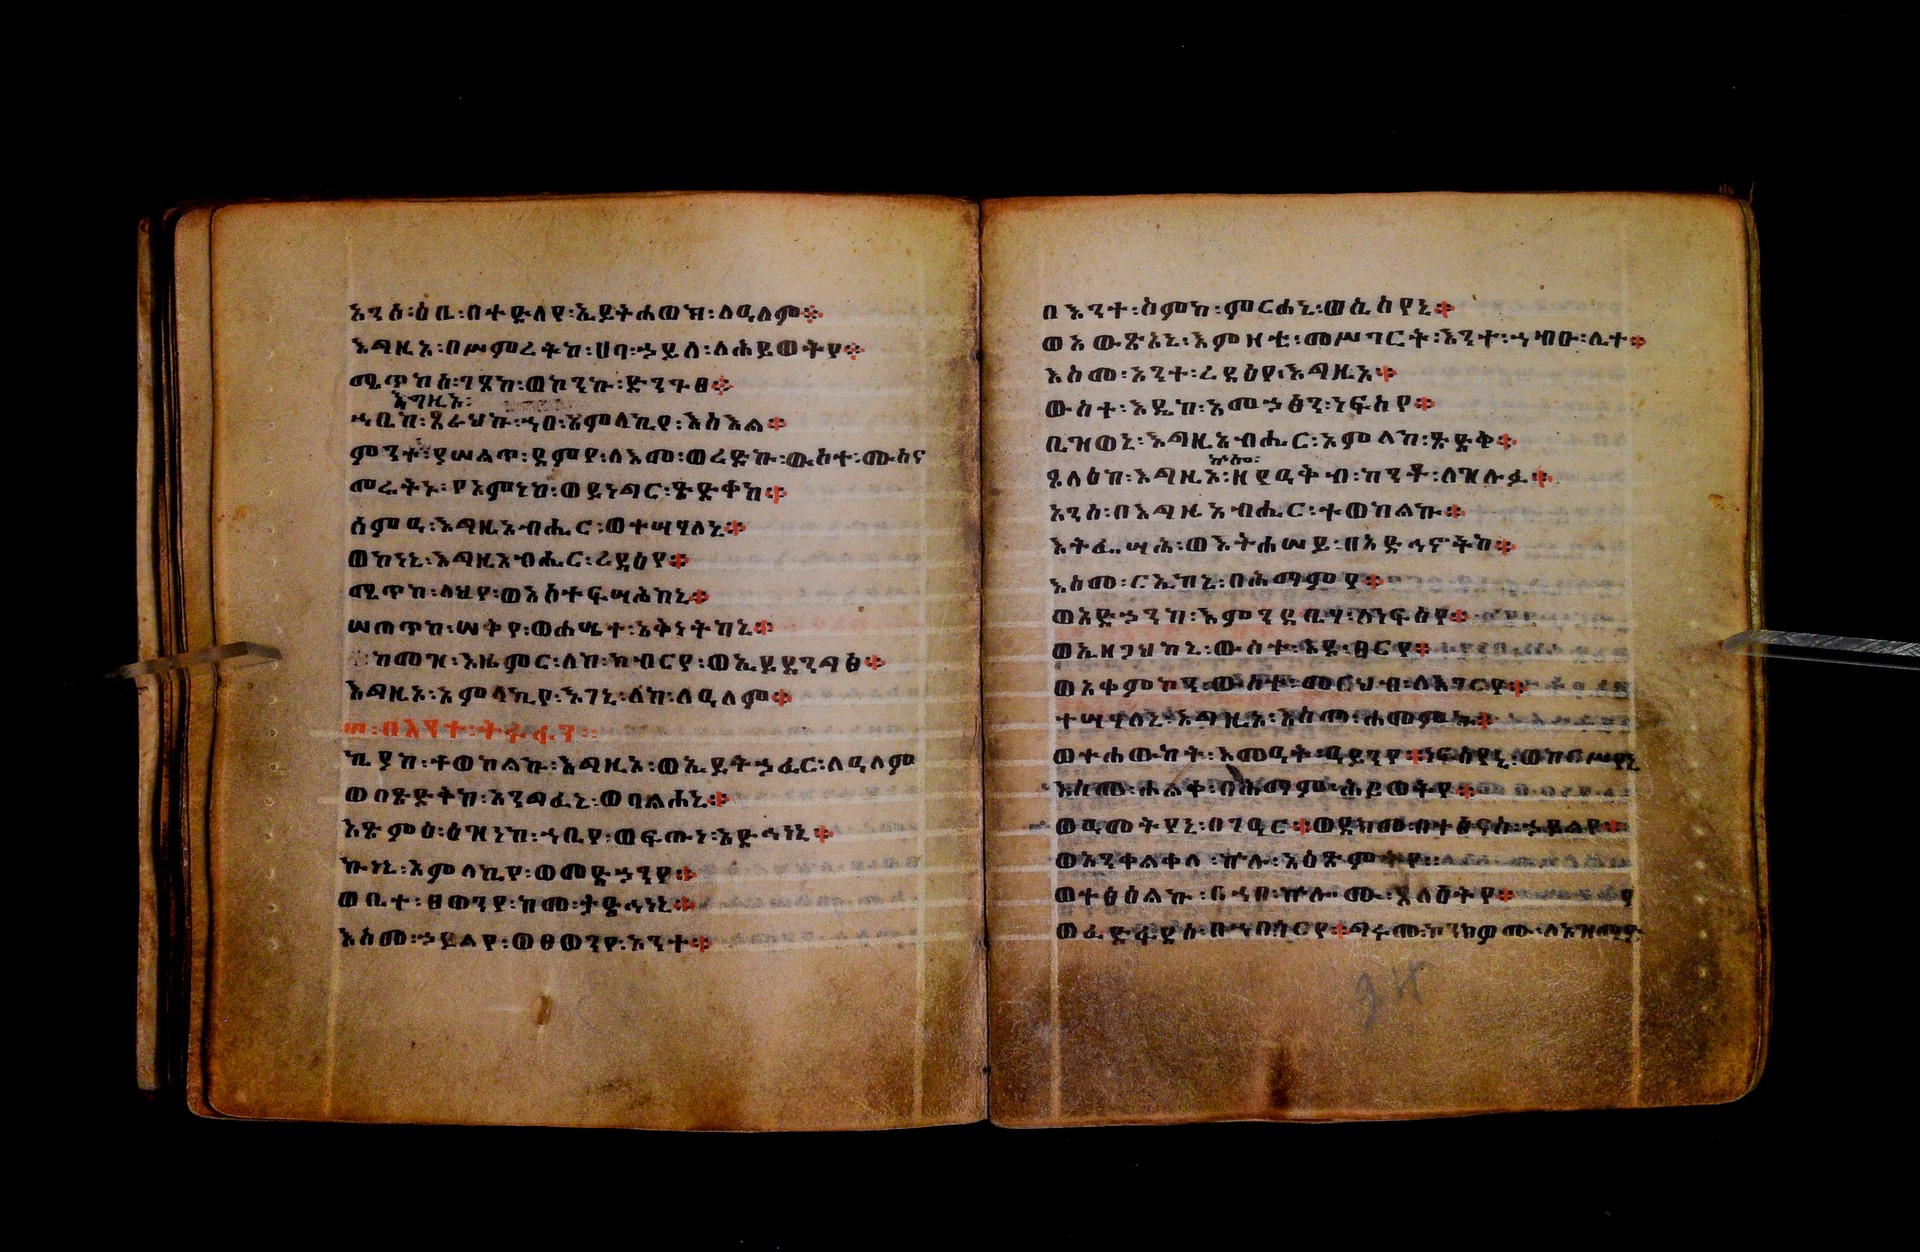 አንሰ፡ዕቤ፡በተድላየ፡ኢይትሐወክ፡ለዓለም።
እግዚኦ፡በሥምረትከ፡ሀባ፡ኃይለ፡ለሕይወትየ።
ሜጥከሰ፡ገጸከ፡ወኮንኩ፡ድንጉፀ።
እግዚኦ፡
ኀቤከ፡ጸራህኩ፡ኀበ፡አምላኪየ፡እስእል።
ምንተ፡ይሠልጥ፡ደምየ፡ለእመ፡ወረድኩ፡ውስተ፡ሙስና
መሬትኑ፡የአምነከ፡ወይነግር፡ጽድቀከ።
ሰምዓ፡እግዚአብሔር፡ወተሣሃለኒ።
ወኮነኒ፡እግዚአብሔር፡ረዳዕየ።
ሜጥከ፡ላህየ፡ወአስተፍሣሕከኒ።
ሠጠጥከ፡ሠቅየ፡ወሐሤተ፡አቅነትከኒ።
ከመዝ፡እዜምር፡ለከ፡ክብርየ፡ወኢይደንግፅ።
እግዚኦ፡አምላኪየ፡እገኒ፡ለከ፡ለዓለም።
፡በእንተ፡ትሩፋን።
ኪያከ፡ተወከልኩ፡እግዚኦ፡ወኢይትኃፈር፡ለዓለም
ወበጽድቅከ፡አንግፈኒ፡ወባልሐኒ።
አጽምዕ፡ዕዝነከ፡ኀቤየ፡ወፍጡነ፡አድኅነኒ።
ኩነኒ፡አምላኪየ፡ወመድኃንየ።
ወቤተ፡ፀወንየ፡ከመ፡ታድኅነኒ።
እስመ፡ኃይልየ፡ወፀወንየ፡አንተ።
በእንተ፡ስምከ፡ምርሐኒ፡ወሴስየኒ።
ወአውጽአኒ፡እምዛቲ፡መሥገርት፡እንተ፡ኀብዑ፡ሊተ።
እስመ፡አንተ፡ረዳዕየ፡እግዚኦ።
ውስተ፡እዴከ፡አመኃፅን፡ነፍስየ።
ቤዝወኒ፡እግዚአብሔር፡አምላከ፡ጽድቅ።
ኵሎ፡
ጸላዕከ፡እግዚኦ፡ዘየዓቅብ፡ከንቶ፡ለዝሉፉ።
አንሰ፡በእግዚአብሔር፡ተወከልኩ።
እትፌሣሕ፡ወእትሐሠይ፡በአድኅኖትከ።
እስመ፡ርኢከኒ፡በሕማምየ።
ወአድኃንካ፡እምንዳቤሃ፡ለነፍስየ።
ወኢዘጋህከኒ፡ውስተ፡እደ፡ፀርየ።
ወአቀምኮን፡ውስተ፡መርህብ፡ለእገርየ።
ተሣሃለኒ፡እግዚኦ፡እስመ፡ሐመምኩ።
ወተሐውከት፡እመዓት፡ዓይንየ።ነፍስየኒ፡ወከርሥየኒ
እስመ፡ሐልቀ፡በሕማም፡ሕይወትየ።
ወዓመትየኒ፡በገዓር።ወደክመ፡በተፅናስ፡ኃይልየ።
ወአንቀልቀለ፡ኵሉ፡አዕጽምትየ።
ወተፅዕልኩ፡በኀበ፡ኵሎሙ፡ጸላዕትየ።
ወፈድፋደሰ፡በኀበ፡ጎርየ።ግሩመ፡ኮንክዎሙ፡ለአዝማድ